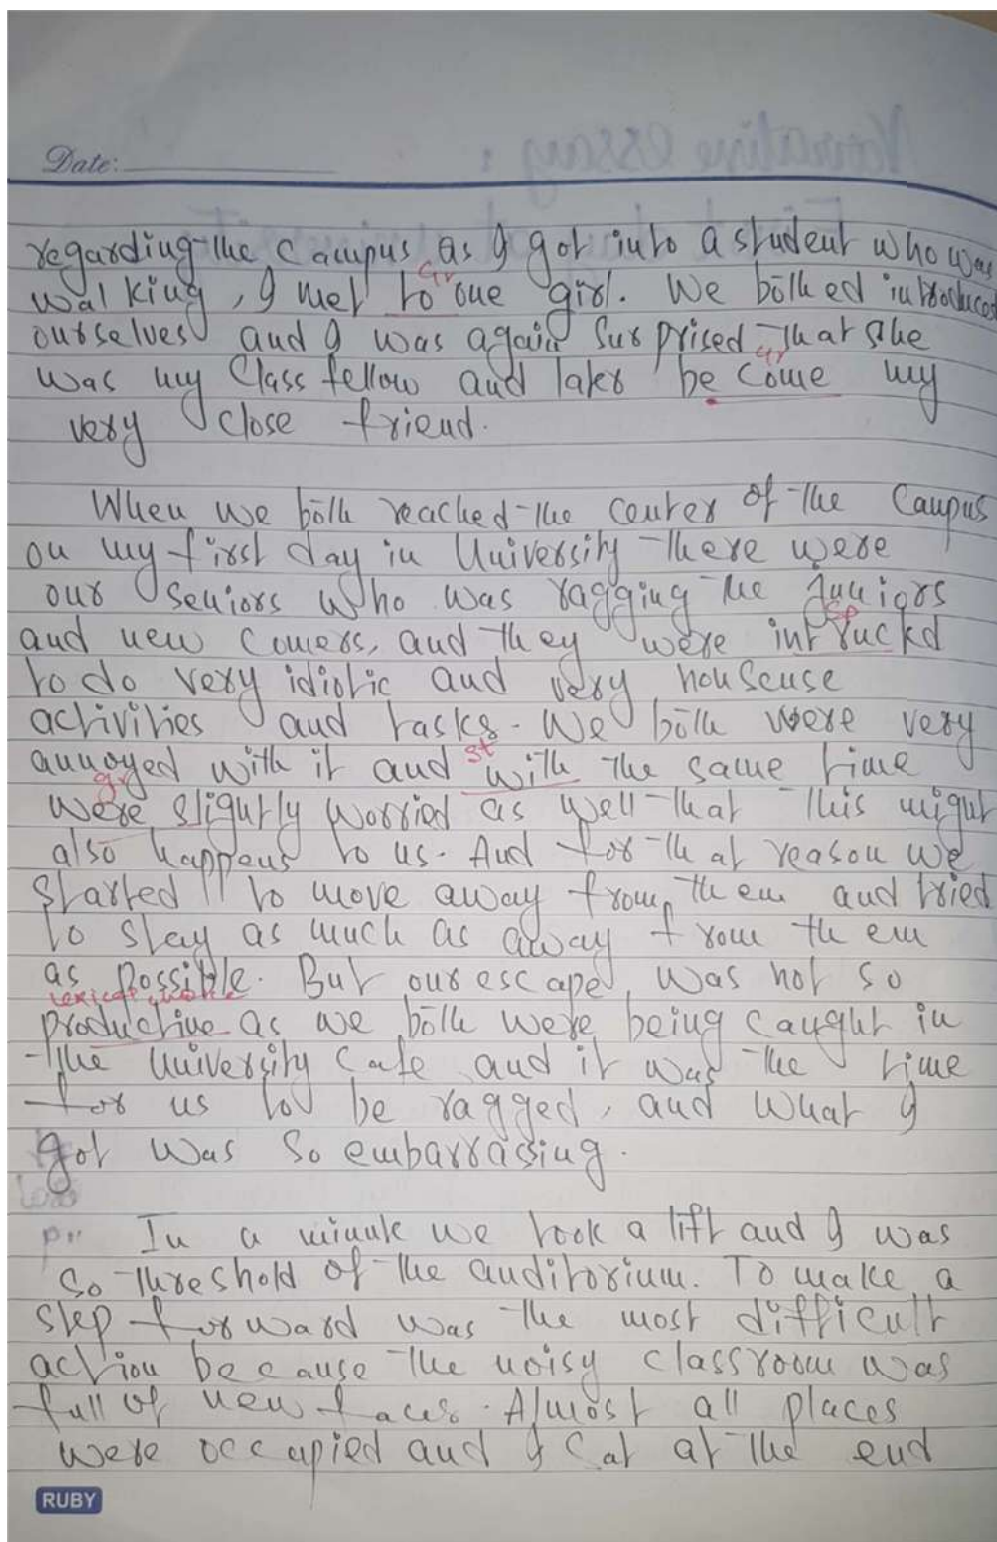 Date:
regarding the Campus as I got into a student who was
walking, I met to one girl. We bothed introduces
gr
ourselves and I was again surprised that she
gr
was my Class fellow and later be come my
very close friend.
When we both reached the center of the Campus
on my first day in University there were
our seniors who was ragging the juniors
sp
and new comers, and they were intructd
to do very idiotic and very nonsense
activities and tasks. We both were very
st
annoyed with it and with the same time
gr
were slightly worried as well that this might
also happens to us. And for that reason we
started to move away from them and tried
to stay as much as away from them
as possible. But our escape was not so
lexical
productive as we both were being caught in
the University Cafe and it was the time
for us to be ragged, and what I
got was so embarrassing.
In a minute we took a lift and I was
so threshold of the auditorium. To make a
step forward was the most difficult
action because the noisy classroom was
full of new faces. Almost all places
were occupied and I Sat at the end
RUBY